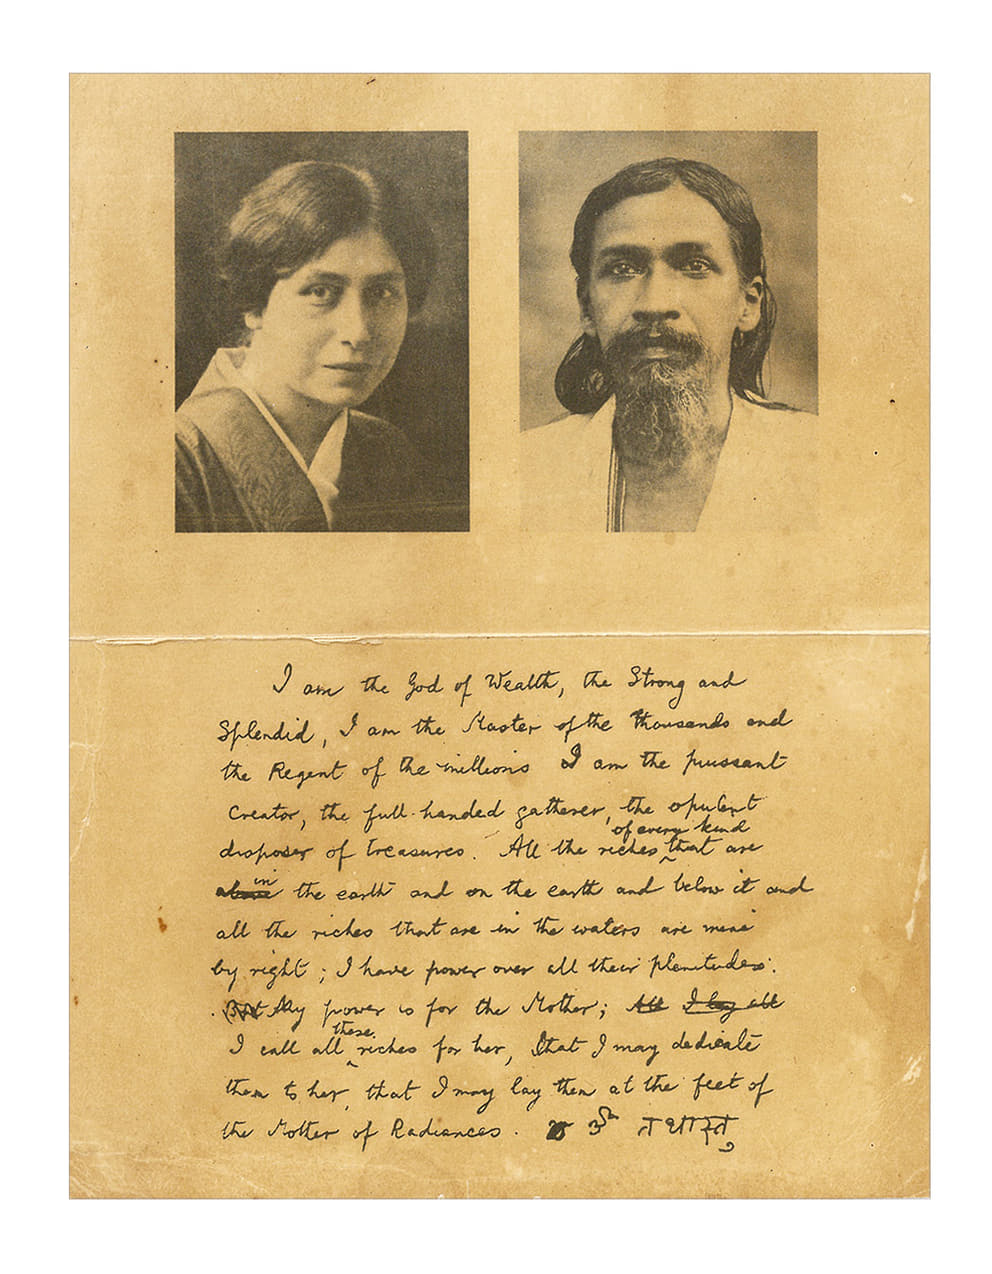 I am the God of Wealth, the Strong and
Splendid, I am the Master of the thousands and
the Regent of the millions I am the puissant
Creator, the full-handed gatherer, the opulent
of every kind
disposer of treasures. All the riches that are
in
above the earth and on the earth and below it and
all the riches that are in the waters are mine
by right; I have power over all their plenitudes.
But My power is for the Mother; All I lay all
these
I call all riches for her, that I may dedicate
them to her, that I may lay them at the feet of
the Mother of Radiances. ॐ तथास्तु